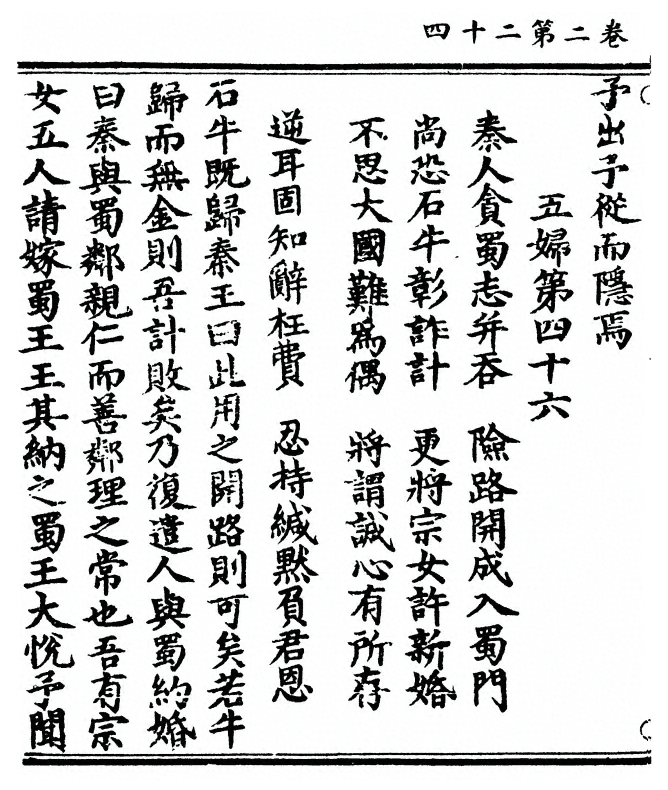 卷二第二十四
予出予從而隱焉
五婦第四十六
秦人貪蜀志并吞　險路開成入蜀門
尚恐石牛彰詐計　更將宗女許新婚
不思大國難為偶　將謂誠心有所存
逆耳固知辭枉費　忍持緘默負君恩
石牛既歸秦王曰此用之開路則可矣若牛
歸而無金則吾計敗矣乃復遣人與蜀約婚
曰秦與蜀鄰親仁而善鄰理之常也吾有宗
女五人請嫁蜀王王其納之蜀王大悅予聞